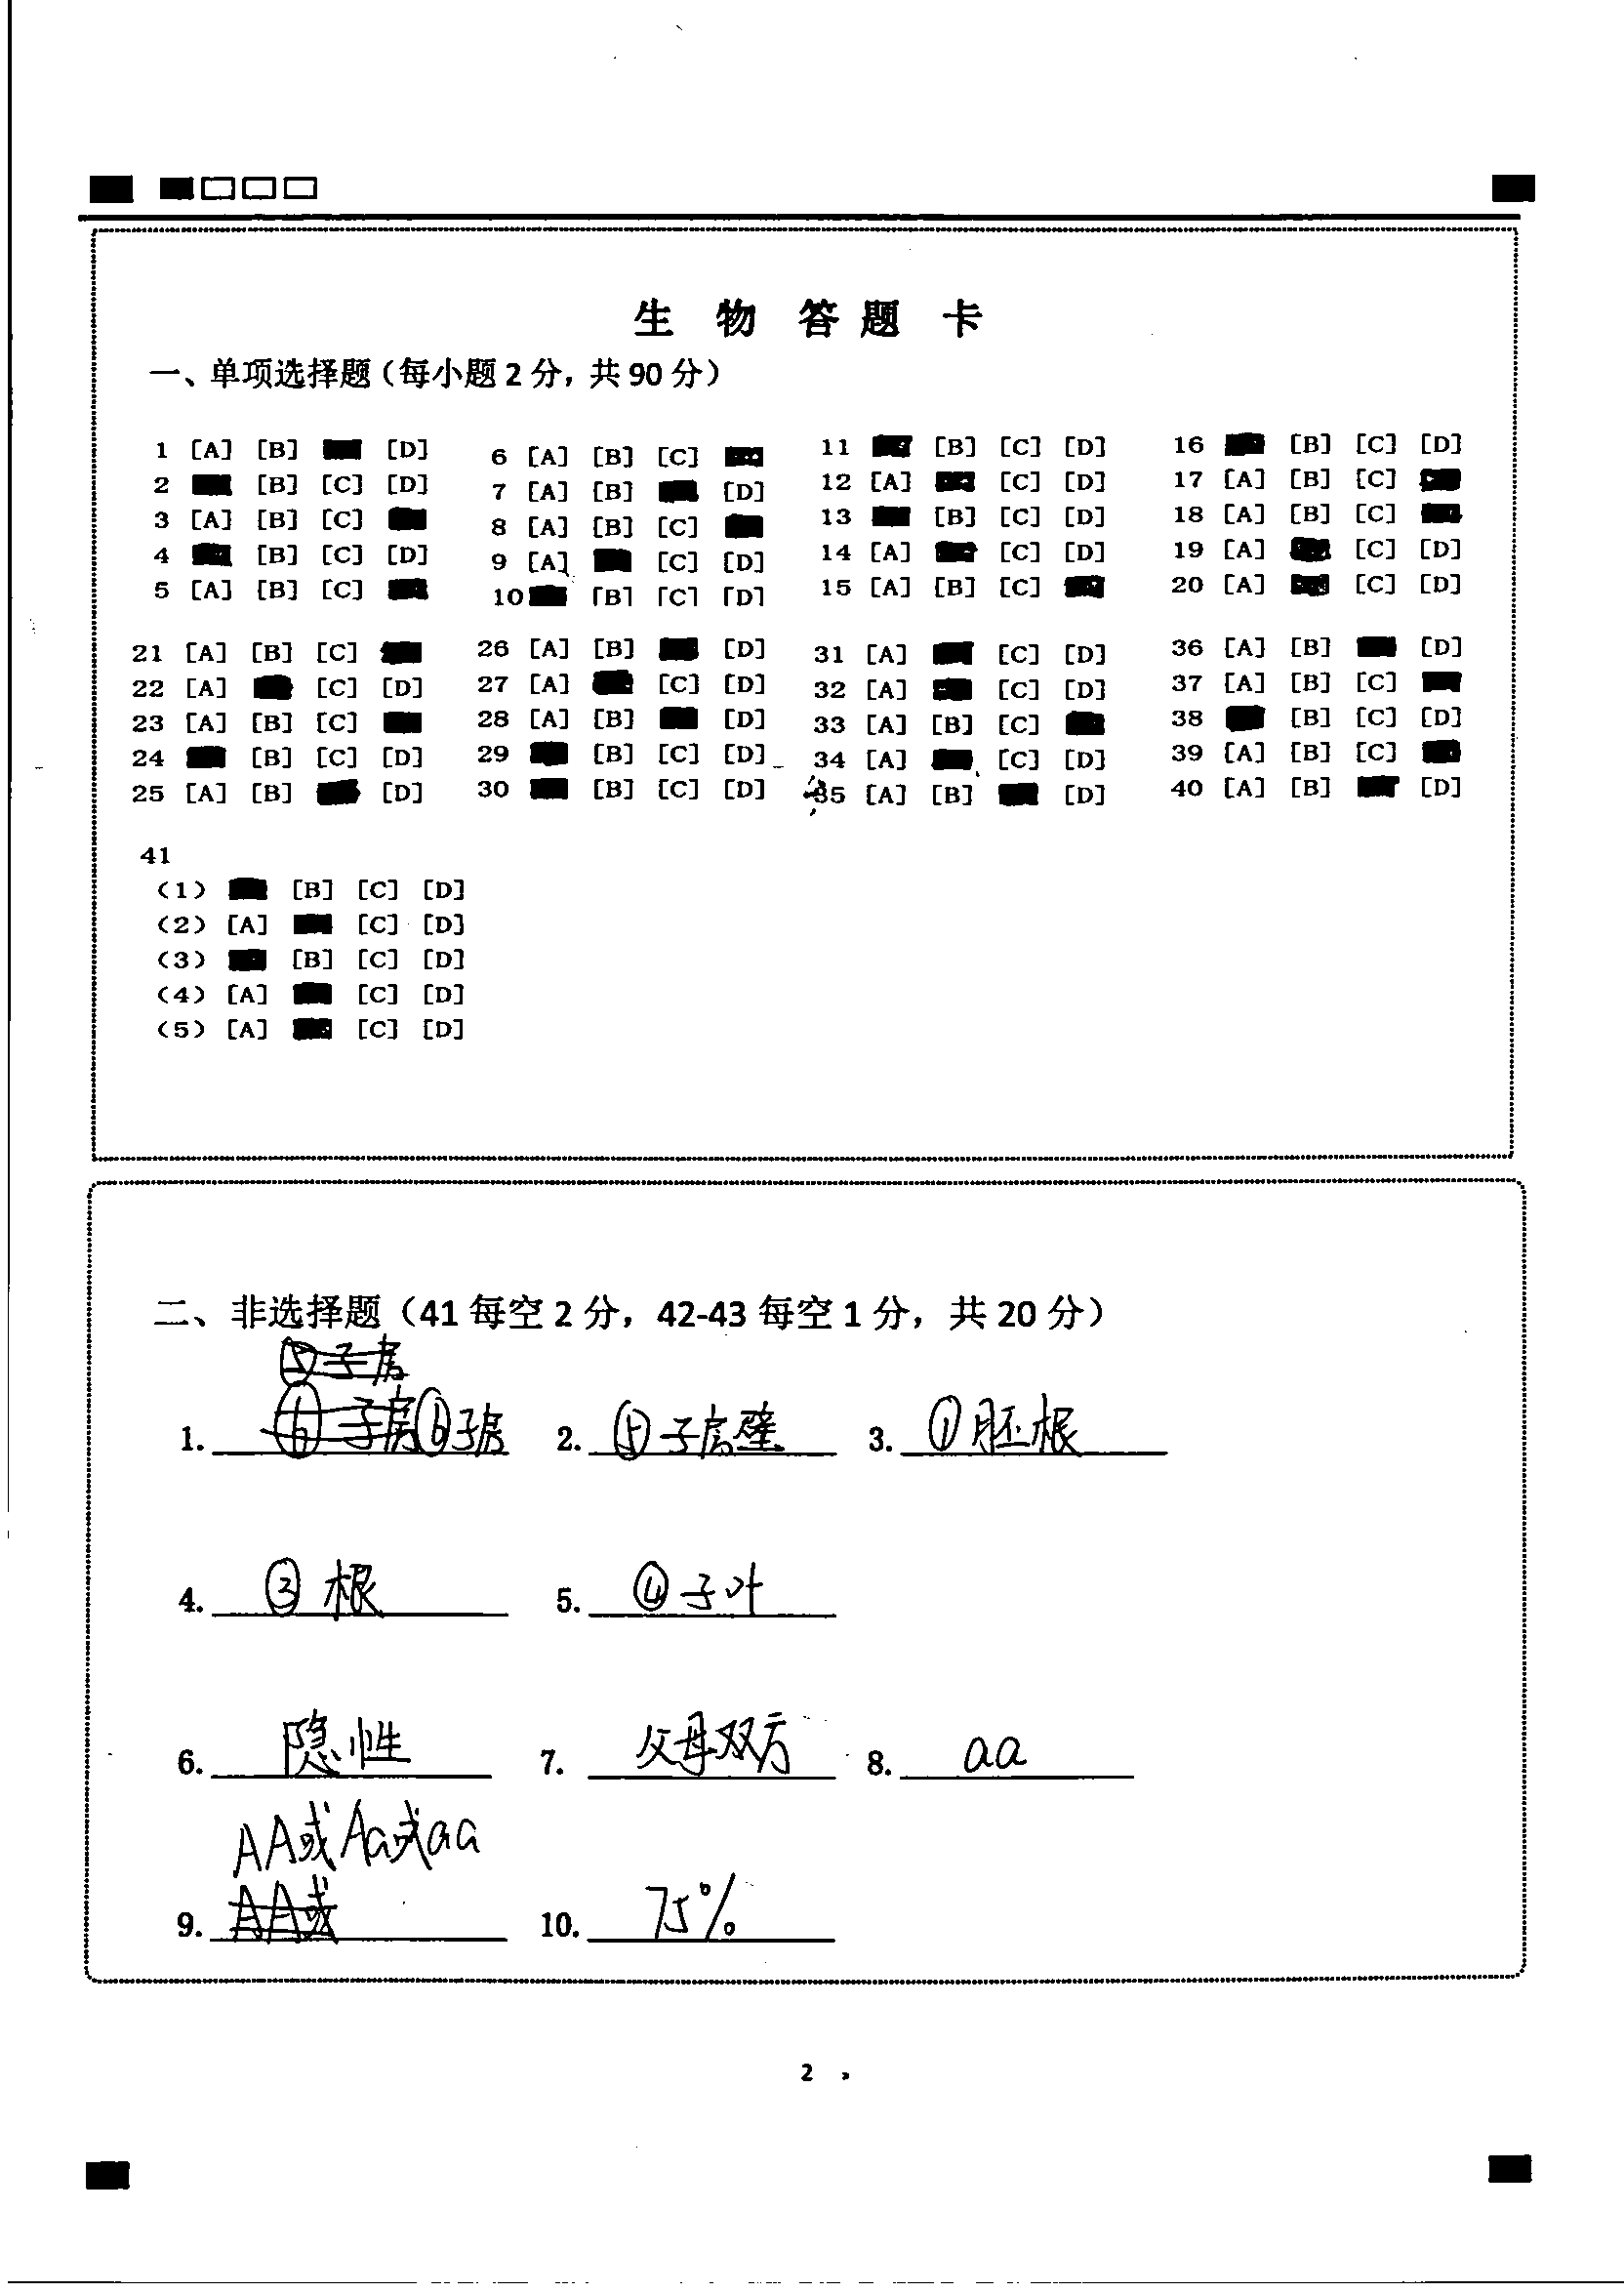 生 物 答 题 卡
一、单项选择题（每小题 2 分，共 90 分）
1 [A] [B] [D]
2 [B] [C] [D]
3 [A] [B] [C]
4 [B] [C] [D]
5 [A] [B] [C]
6 [A] [B] [C]
7 [A] [B] [D]
8 [A] [B] [C]
9 [A] [C] [D]
10 [B] [C] [D]
11 [B] [C] [D]
12 [A] [C] [D]
13 [B] [C] [D]
14 [A] [C] [D]
15 [A] [B] [C]
16 [B] [C] [D]
17 [A] [B] [C]
18 [A] [B] [C]
19 [A] [C] [D]
20 [A] [C] [D]
21 [A] [B] [C]
22 [A] [C] [D]
23 [A] [B] [C]
24 [B] [C] [D]
25 [A] [B] [D]
26 [A] [B] [D]
27 [A] [C] [D]
28 [A] [B] [D]
29 [B] [C] [D]
30 [B] [C] [D]
31 [A] [C] [D]
32 [A] [C] [D]
33 [A] [B] [C]
34 [A] [C] [D]
35 [A] [B] [D]
36 [A] [B] [D]
37 [A] [B] [C]
38 [B] [C] [D]
39 [A] [B] [C]
40 [A] [B] [D]
41
(1) [B] [C] [D]
(2) [A] [C] [D]
(3) [B] [C] [D]
(4) [A] [C] [D]
(5) [A] [C] [D]
二、非选择题（41 每空 2 分，42-43 每空 1 分，共 20 分）
⑤子房
1. ⑥子房⑥子房 2. ⑤子房壁 3. ①胚根
4. ③根 5. ④子叶
6. 隐性 7. 父母双方 8. aa
AA或Aa或aa
9. AA或 10. 75%
2